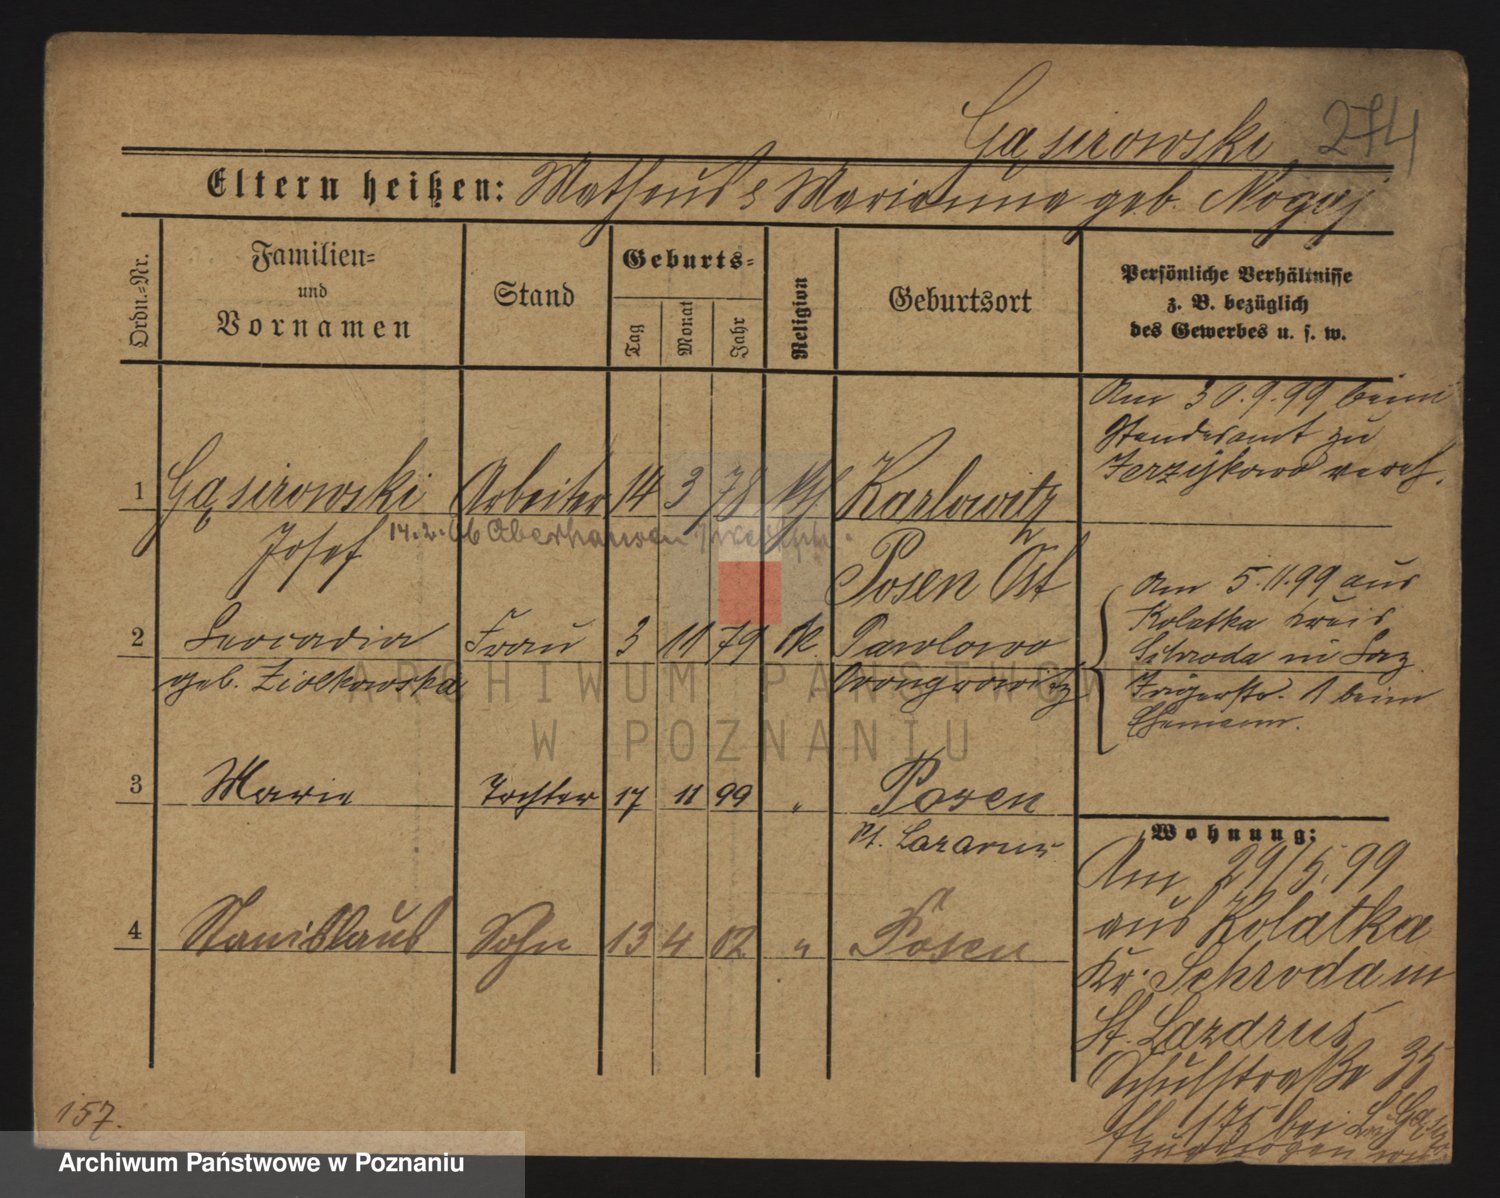 Gąsirowski 274
Eltern heißen: Matheus & Marianna geb. Nogaj
Ordn.-Nr.
Familien-
und
Vornamen
Stand
Geburts-
Tag
Monat
Jahr
Religion
Geburtsort
Persönliche Verhältnisse
z. B. bezüglich
des Gewerbes u. s. w.
Am 30.9.99 beim
Standesamt zu
Jerzykowo vereh.
1 Gąsirowski Arbeiter 14 3 78 kth Karlowitz
Josef 14.2.06 Oberhausen
Posen Ost
2 Leocadia Frau 3 11 79 k. Pawlowo
geb. Ziolkowska Wongrowitz
Am 5.11.99 aus
Kolatka Kreis
Schroda in Laz.
Jägerstr. 1 beim
Ehemann.
3 Marie Tochter 17 11 99 " Posen
St. Lazarus
4 Stanislaus Sohn 13 4 02 " Posen
Wohnung:
Am 29/5.99
aus Kolatka
Kr. Schroda in
St. Lazarus
Schulstraße 35
175 bei
zugezogen
157.
Archiwum Państwowe w Poznaniu
ARCHIWUM PAŃSTWOWE
W POZNANIU